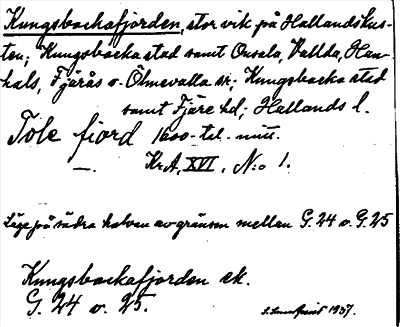 Kungsbackafjorden, stor vik på Hallandskus-
ten; Kungsbacka stad samt Onsala, Vallda, Han-
hals, Fjärås o. Ölmevalla sk; Kungsbacka stad
samt Fjäre hd; Hallands l.
Tole fiord 1600-tal. mitt.
—. Kr.A. XVI, N:o 1.
Läge på södra halvan av gränsen mellan G. 24 o. G. 25
Kungsbackafjorden ek.
G. 24 o. 25.
1937.